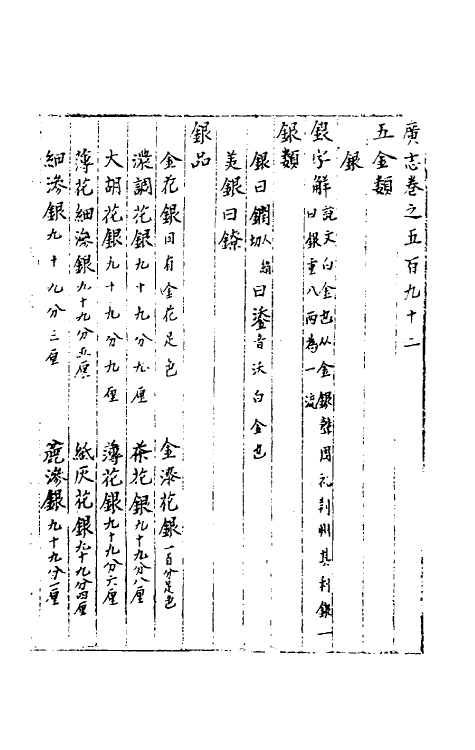 廣志卷之五百九十二
五金類
銀
銀字解 說文白金也从金銀聲周禮荆州其利銀一
曰銀重八兩為一流
銀類
銀曰鐧 切 曰鋈音沃白金也
美銀曰鐐
銀品
金花銀回有金花足色 金漆花銀一百分足色
濃調花銀九十九分九厘 茶花銀九十九分八厘
大胡花銀九十九分九厘 薄花銀九十九分六厘
薄花細滲銀九十九分五厘 紙灰花銀九十九分四厘
細滲銀九十九分三厘 麄滲銀九十九分一厘